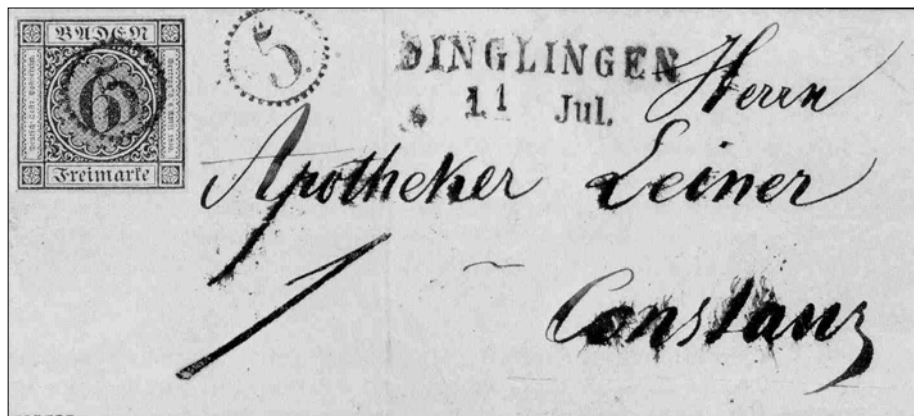 BADEN
6
Freimarke
5
DINGLINGEN
11 Jul.
Herrn
Apotheker Leiner
Constanz